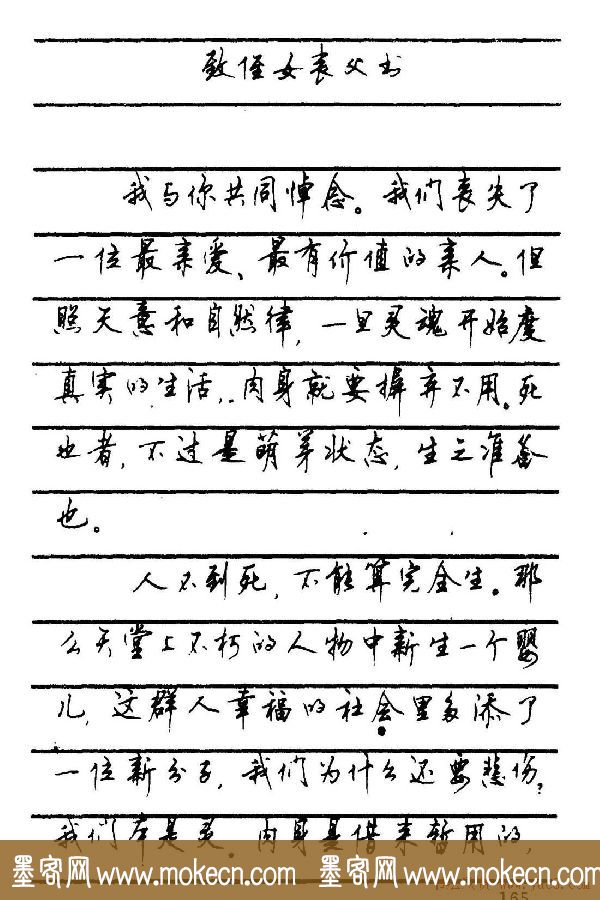 致侄女丧父书
我与你共同悼念。我们丧失了
一位最亲爱、最有价值的亲人。但
照天意和自然律,一旦灵魂开始度
真实的生活,肉身就要摒弃不用。死
也者,不过是萌芽状态,生之准备
也。
人不到死,不能算完全生。那
么天堂上不朽的人物中新生一个婴
儿,这群人幸福的社会里多添了
一位新分子,我们为什么还要悲伤?
我们本是灵。肉身是借来暂用的,
墨客网www.mokecn.com 墨客网www.mokecn.com
165